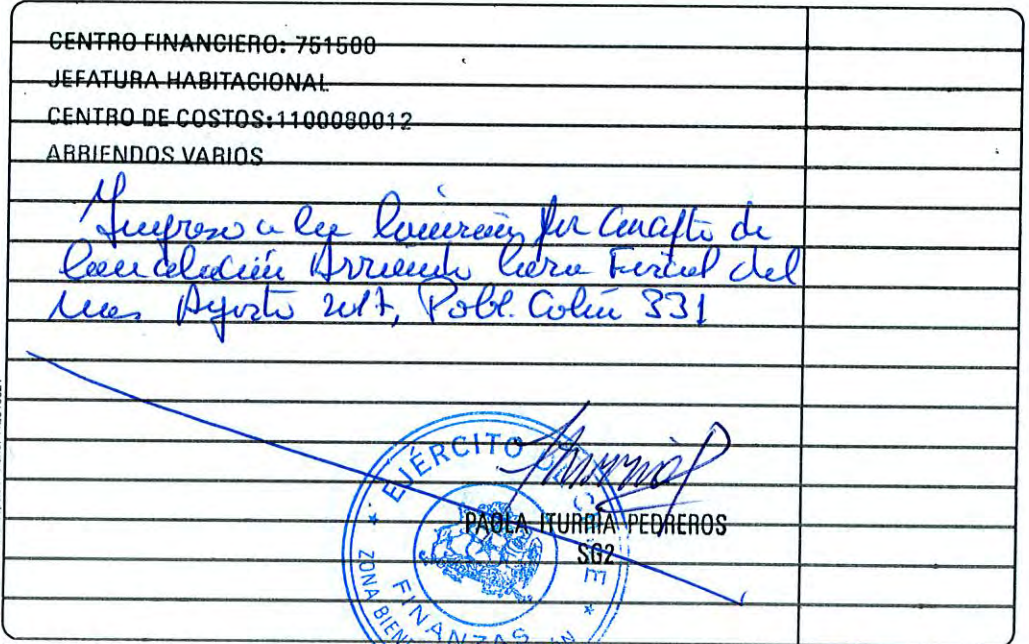 CENTRO FINANCIERO: 751500
JEFATURA HABITACIONAL
CENTRO DE COSTOS:1100080012
ARRIENDOS VARIOS
Ingreso a la por Concepto de
Cancelación Arriendo Casa Fiscal del
mes Agosto 2017, Pobl. Colin 331
EJÉRCITO DE CHILE
PAOLA ITURRIA PEDREROS
SG2
FINANZAS
ZONA